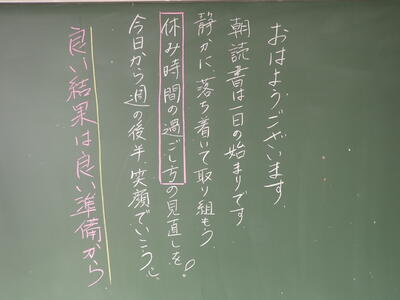 おはようございます。
朝読書は一日の始まりです
静かに落ち着いて取り組もう。
休み時間の過ごし方の見直しを!
今日から週の後半、笑顔でいこう。
良い結果は良い準備から